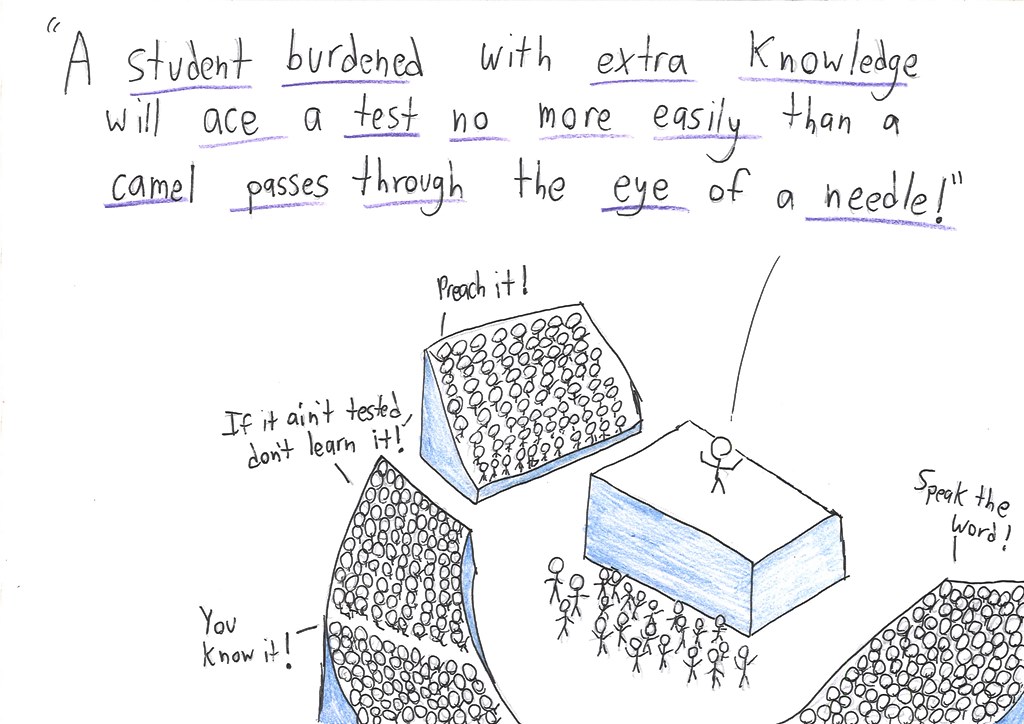 "A student burdened with extra knowledge
will ace a test no more easily than a
camel passes through the eye of a needle!"
Preach it!
If it ain't tested,
don't learn it!
Speak the
word!
You
know it!